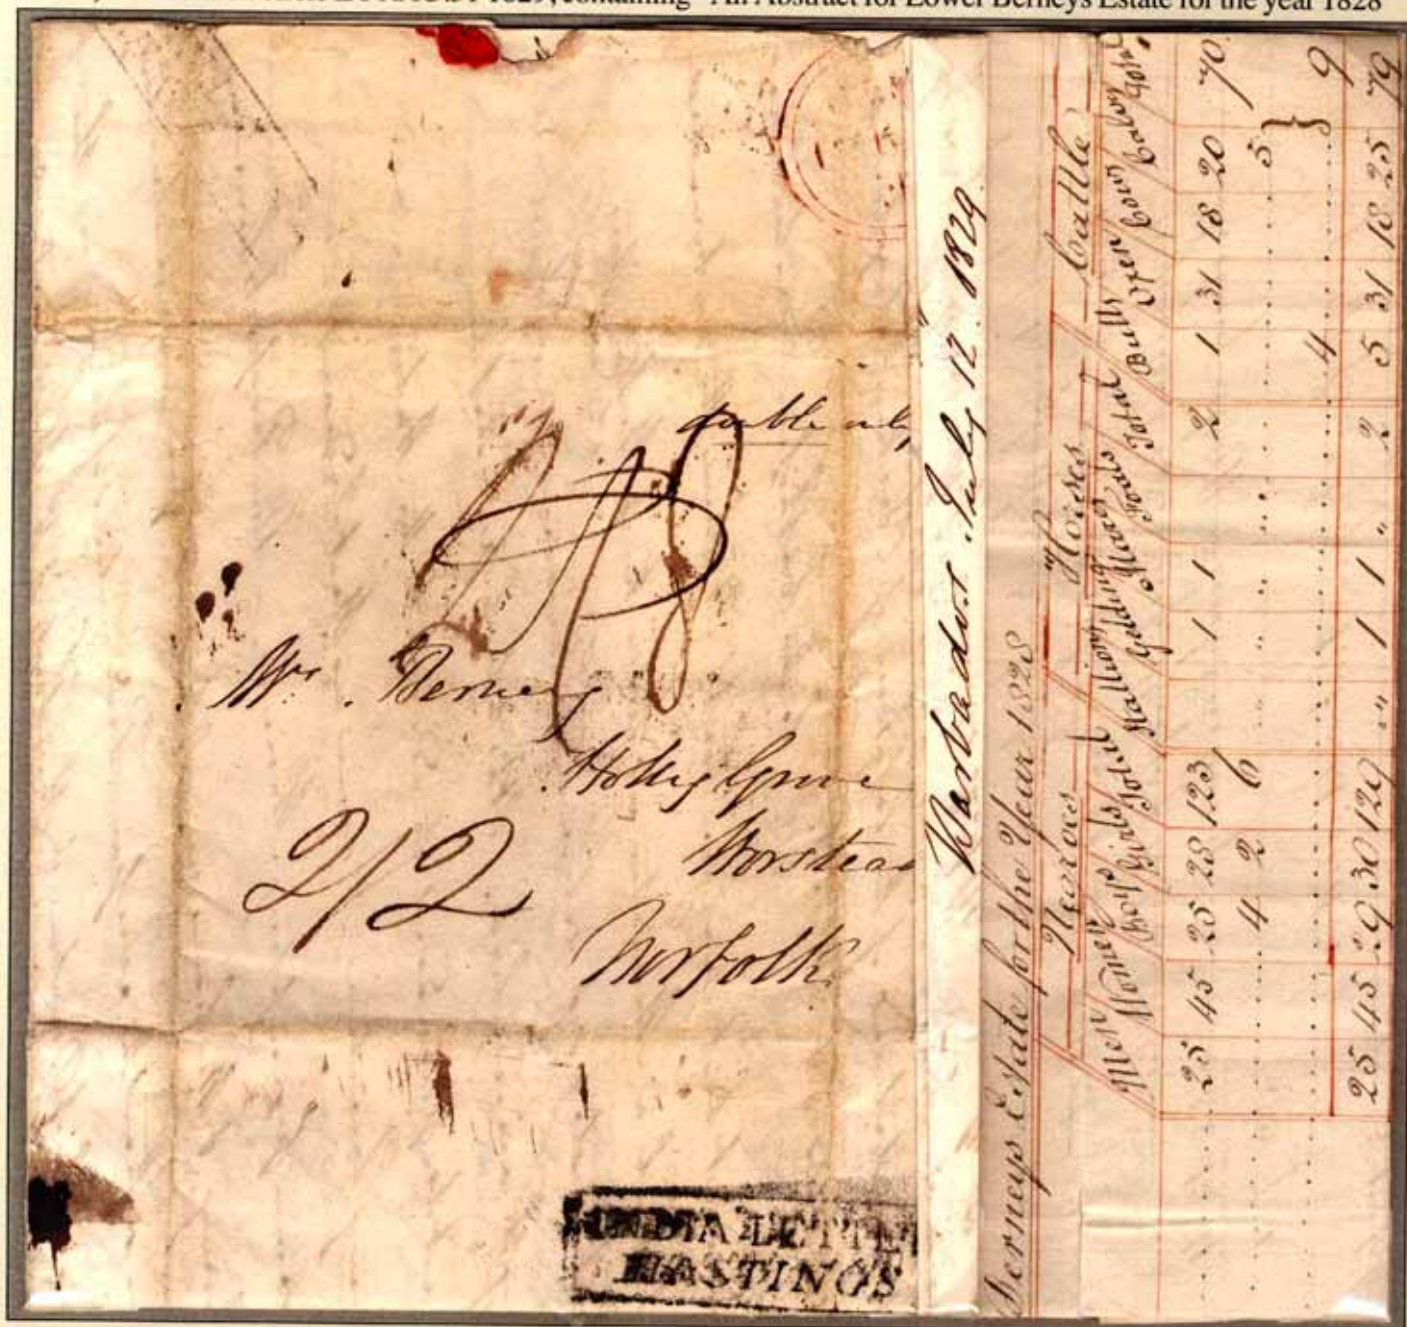 1829, containing "An Abstract for Lower Berneys Estate for the year 1828"
double only
Mr. Berney
Holly Grove
Worstead
Norfolk
2/2
INDIA LETTER
HASTINGS
Barbados July 12. 1829
Berneys Estate for the Year 1828
Negroes Horses Cattle
Men Women Boys Girls Total Stallions Geldings Mares Total Bulls Oxen Cows Total
25 45 25 28 123 1 1 2 1 31 18 20 70
4 2 6 5
4 9
25 45 29 30 129 " 1 1 " 2 5 31 18 25 79